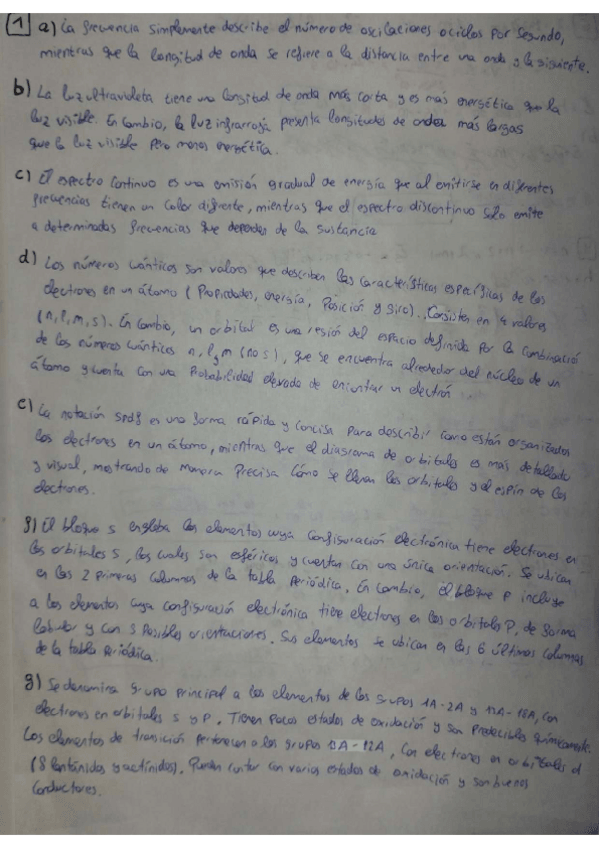 1 a) La frecuencia simplemente describe el número de oscilaciones o ciclos por segundo,
mientras que la longitud de onda se refiere a la distancia entre una onda y la siguiente.
b) La luz ultravioleta tiene una longitud de onda más corta y es más energética que la
luz visible. En cambio, la luz infrarroja presenta longitudes de onda más largas
que la luz visible pero menos energética.
c) El espectro continuo es una emisión gradual de energía que al emitirse en diferentes
frecuencias tienen un color diferente, mientras que el espectro discontinuo solo emite
a determinadas frecuencias que dependen de la sustancia
d) Los números cuánticos son valores que describen las características específicas de los
electrones en un átomo (Propiedades, energía, Posición y giro). Consisten en 4 valores
(n, l, m, s). En cambio, un orbital es una región del espacio definida por la combinación
de los números cuánticos n, l y m (no s), que se encuentra alrededor del núcleo de un
átomo y cuenta con una Probabilidad elevada de encontrar un electrón
e) La notación spdf es una forma rápida y concisa para describir como están organizados
los electrones en un átomo, mientras que el diagrama de orbitales es más detallado
y visual, mostrando de manera precisa cómo se llenan los orbitales y el espín de los
electrones.
f) El bloque s engloba los elementos cuya configuración electrónica tiene electrones en
los orbitales s, los cuales son esféricos y cuentan con una única orientación. Se ubican
en las 2 primeras columnas de la tabla periódica. En cambio, el bloque p incluye
a los elementos cuya configuración electrónica tiene electrones en los orbitales P, de forma
lobular y con 3 posibles orientaciones. Sus elementos se ubican en las 6 últimas columnas
de la tabla periódica.
g) Se denomina grupo principal a los elementos de los grupos 1A-2A y 13A-18A, con
electrones en orbitales s y P. Tienen pocos estados de oxidación y son predecibles químicamente.
Los elementos de transición pertenecen a los grupos 3A-12A, con electrones en orbitales d
(8 lantánidos y actínidos). Pueden contar con varios estados de oxidación y son buenos
conductores.